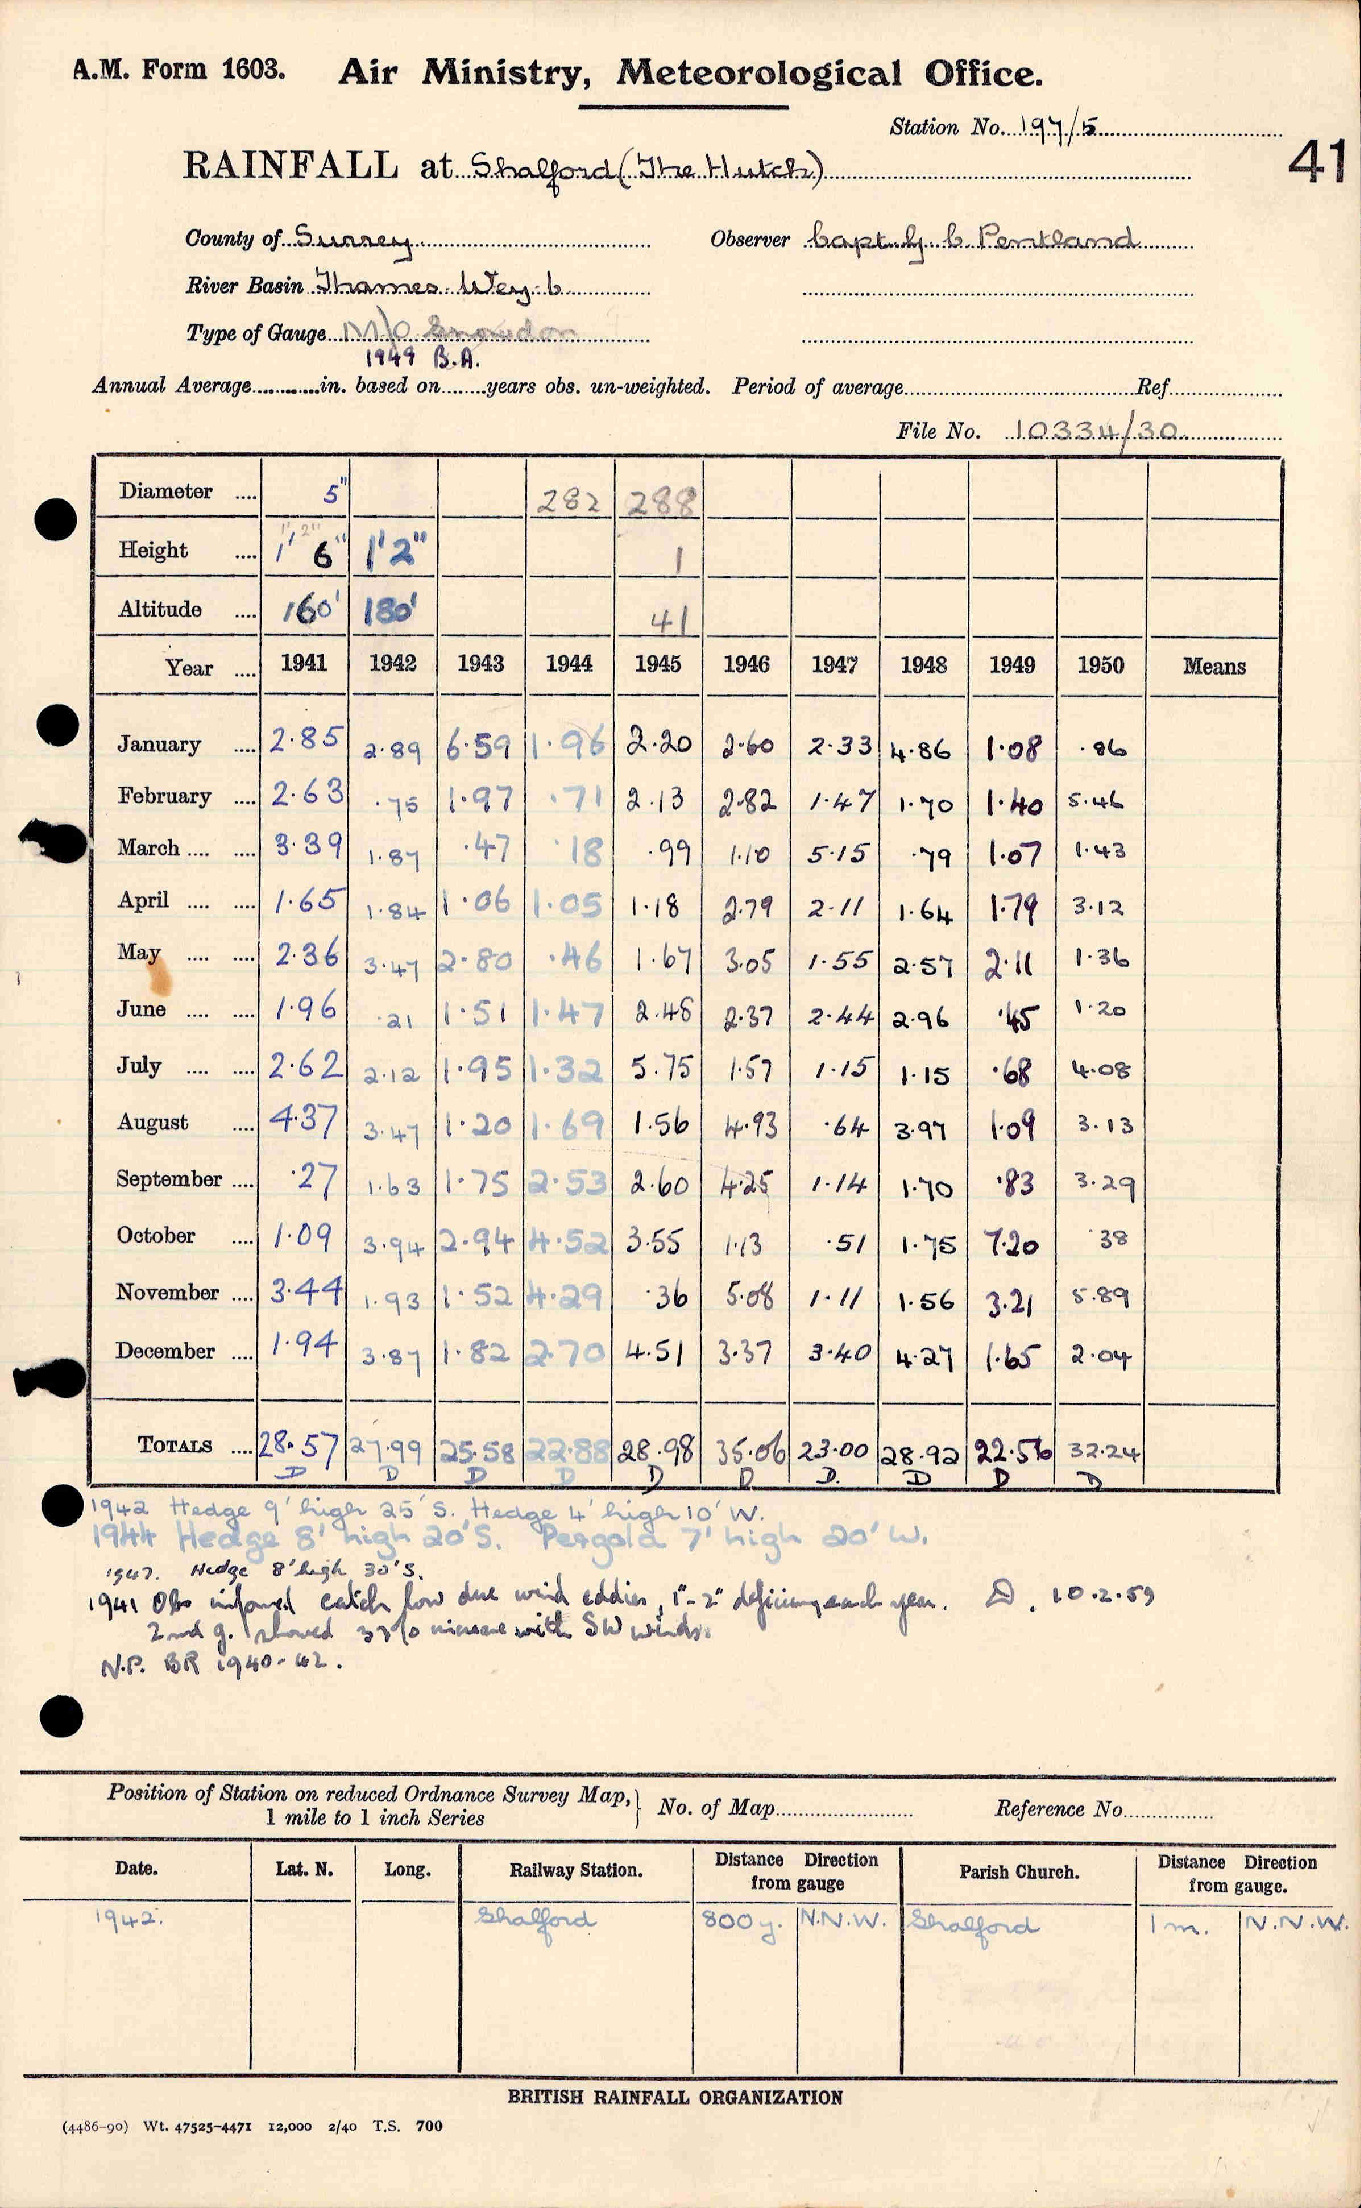 A.M. Form 1603. Air Ministry, Meteorological Office.
Station No. 197/5
41
RAINFALL at Shalford (The Hutch)
County of Surrey Observer Capt. G. C Pentland
River Basin Thames. Wey. b
Type of Gauge M/O Snowdon
1949 B.A.
Annual Average............in. based on........years obs. un-weighted. Period of average Ref.
File No. 10334/30
Diameter .... 5" 282 288
1'2"
Height .... 1' 6" 1'2" 1
Altitude .... 160' 180' 41
Year .... 1941 1942 1943 1944 1945 1946 1947 1948 1949 1950 Means
January .... 2.85 2.89 6.59 1.96 2.20 2.60 2.33 4.86 1.08 .86
February .... 2.63 .75 1.97 .71 2.13 2.82 1.47 1.70 1.40 5.46
March .... .... 3.39 1.87 .47 .18 .99 1.10 5.15 .79 1.07 1.43
April .... .... 1.65 1.84 1.06 1.05 1.18 2.79 2.11 1.64 1.79 3.12
May .... .... 2.36 3.47 2.80 .46 1.67 3.05 1.55 2.57 2.11 1.36
June .... .... 1.96 .21 1.51 1.47 2.48 2.37 2.44 2.96 .45 1.20
July .... .... 2.62 2.12 1.95 1.32 5.75 1.57 1.15 1.15 .68 4.08
August .... 4.37 3.47 1.20 1.69 1.56 4.93 .64 3.97 1.09 3.13
September .... .27 1.63 1.75 2.53 2.60 4.25 1.14 1.70 .83 3.29
October .... 1.09 3.94 2.94 4.52 3.55 1.13 .51 1.75 7.20 .38
November .... 3.44 1.93 1.52 4.29 .36 5.08 1.11 1.56 3.21 5.89
December .... 1.94 3.87 1.82 2.70 4.51 3.37 3.40 4.27 1.65 2.04
TOTALS .... 28.57 27.99 25.58 22.88 28.98 35.06 23.00 28.92 22.56 32.24
D D D D D D D. D D D
1942 Hedge 9' high 25' S. Hedge 4' high 10' W.
1944 Hedge 8' high 20' S. Pergola 7' high 20' W.
1947. Hedge 8' high 30' S.
1941 Obs informed catch low due wind eddies, 1"-2" deficiency each year. D. 10.2.59
2nd g. showed 33% increase with SW winds.
N.P. BR 1940-42.
Position of Station on reduced Ordnance Survey Map, No. of Map Reference No.
1 mile to 1 inch Series
Date. Lat. N. Long. Railway Station. Distance Direction from gauge Parish Church. Distance Direction from gauge.
1942. Shalford 800y. N.N.W. Shalford 1 m. N.N.W.
BRITISH RAINFALL ORGANIZATION
(4486-90) Wt. 47525-4471 12,000 2/40 T.S. 700